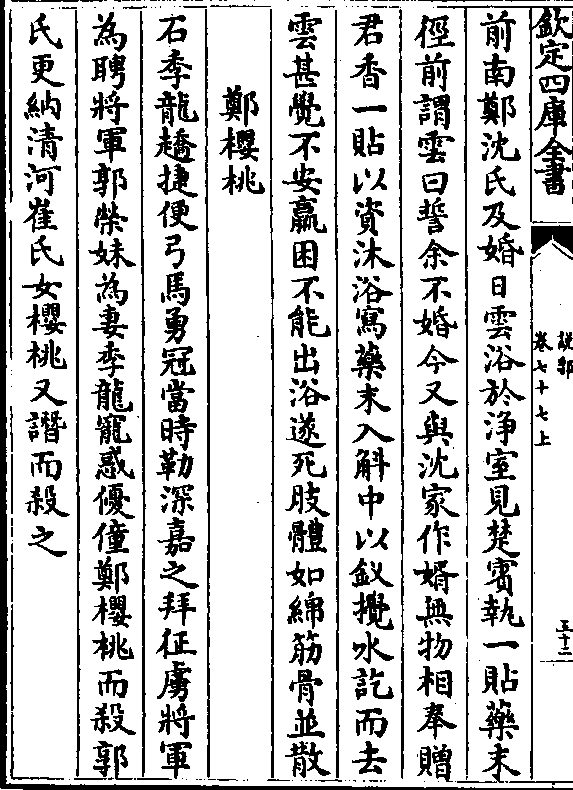 欽定四庫全書
說郛
卷七十七上
五十二
前南鄭沈氏及婚日雲浴於淨室見楚賓執一貼藥末
徑前謂雲曰誓余不婚今又與沈家作婿無物相奉贈
君香一貼以資沐浴寫藥末入斛中以釵攪水訖而去
雲甚覺不安羸困不能出浴遂死肢體如綿筋骨並散
鄭櫻桃
石季龍趫捷便弓馬勇冠當時勒深嘉之拜征虜將軍
為聘將軍郭榮妹為妻季龍寵惑優僮鄭櫻桃而殺郭
氏更納清河崔氏女櫻桃又譖而殺之